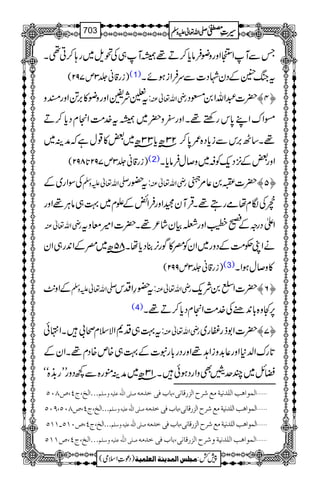 سیرتِ مصطفیٰ صلی اللہ تعالیٰ علیہ وسلم 703
جس سے آپ استنجا اور وضو فرمایا کرتے تھے ہمیشہ آپ ہی کی تحویل میں رہا کرتی تھی۔
یہ جنگ حنین کے دن شہادت سے سرفراز ہوئے۔(1) (زرقانی جلد۳ ص۲۹۷)
﴿۴﴾ حضرت عبداللہ ابن مسعود رضی اللہ تعالیٰ عنہ: یہ نعلین شریفین اور وضو کا برتن اور مسند و
مسواک اپنے پاس رکھتے تھے۔ اور سفر و حضر میں ہمیشہ یہ خدمت انجام دیا کرتے
تھے۔ ساٹھ برس سے زیادہ عمر پا کر ۳۲ھ یا ۳۳ھ میں بعض کا قول ہے کہ مدینہ میں
اور بعض کے نزدیک کوفہ میں وصال فرمایا۔(2) (زرقانی جلد۳ ص۲۹۷ تا ۲۹۸)
﴿۵﴾ حضرت عقبہ بن عامر جہنی رضی اللہ تعالیٰ عنہ: یہ حضور صلی اللہ تعالیٰ علیہ وسلم کی سواری کے
خچر کی لگام تھامے رہتے تھے۔ قرآن مجید اور فرائض کے علوم میں بہت ہی ماہر تھے اور
اعلیٰ درجہ کے فصیح خطیب اور شعلہ بیان شاعر تھے۔ حضرت امیر معاویہ رضی اللہ تعالیٰ عنہ
نے اپنی حکومت کے دور میں ان کو مصر کا گورنر بنا دیا تھا۔ ۵۸ھ میں مصر کے اندر ہی ان
کا وصال ہوا۔(3) (زرقانی جلد۳ ص۲۹۹)
﴿۶﴾ حضرت اسلع بن شریک رضی اللہ تعالیٰ عنہ: یہ حضور اقدس صلی اللہ تعالیٰ علیہ وسلم کے اونٹ
پر کجاوہ باندھنے کی خدمت انجام دیا کرتے تھے۔(4)
﴿۷﴾ حضرت ابوذر غفاری رضی اللہ تعالیٰ عنہ: یہ بہت ہی قدیم الاسلام صحابی ہیں۔ انتہائی
تارک الدنیا اور عابد و زاہد تھے اور دربار نبوت کے بہت ہی خاص خادم تھے۔ ان کے
فضائل میں چند حدیثیں بھی وارد ہوئی ہیں۔ ۳۱ھ میں مدینہ منورہ سے کچھ دور "ربذہ"
المواهب اللدنية مع شرح الزرقانى، باب فى خدمه صلى الله عليه وسلم...الخ، ج٤، ص٥٠٨
المواهب اللدنية مع شرح الزرقانى، باب فى خدمه صلى الله عليه وسلم...الخ، ج٤، ص٥٠٨، ٥٠٩
المواهب اللدنية مع شرح الزرقانى، باب فى خدمه صلى الله عليه وسلم...الخ، ج٤، ص٥١٠، ٥١١
المواهب اللدنية و شرح الزرقانى، باب فى خدمه صلى الله عليه وسلم...الخ، ج٤، ص٥١١
پیش کش: مجلس المدينة العلمية (دعوتِ اسلامی)